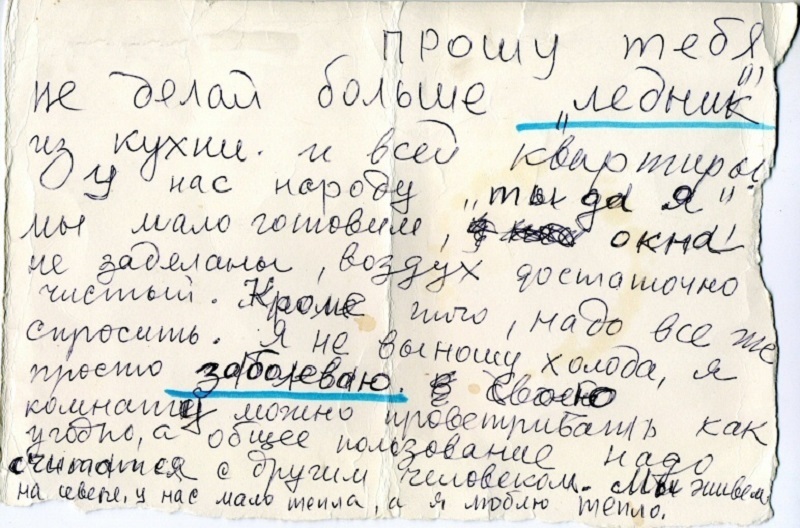 прошу тебя
не делай больше „ледник"
из кухни. и всей квартиры!
У нас народу „ты да я".
мы мало готовим, окна
не заделаны, воздух достаточно
чистый. Кроме того, надо все же
спросить. Я не выношу холода, я
просто заболеваю. Свою
комнату можно проветривать как
угодно, а общее пользование надо
считатся с другим человеком. Мы живем
на севере, у нас мало тепла, а я люблю тепло.